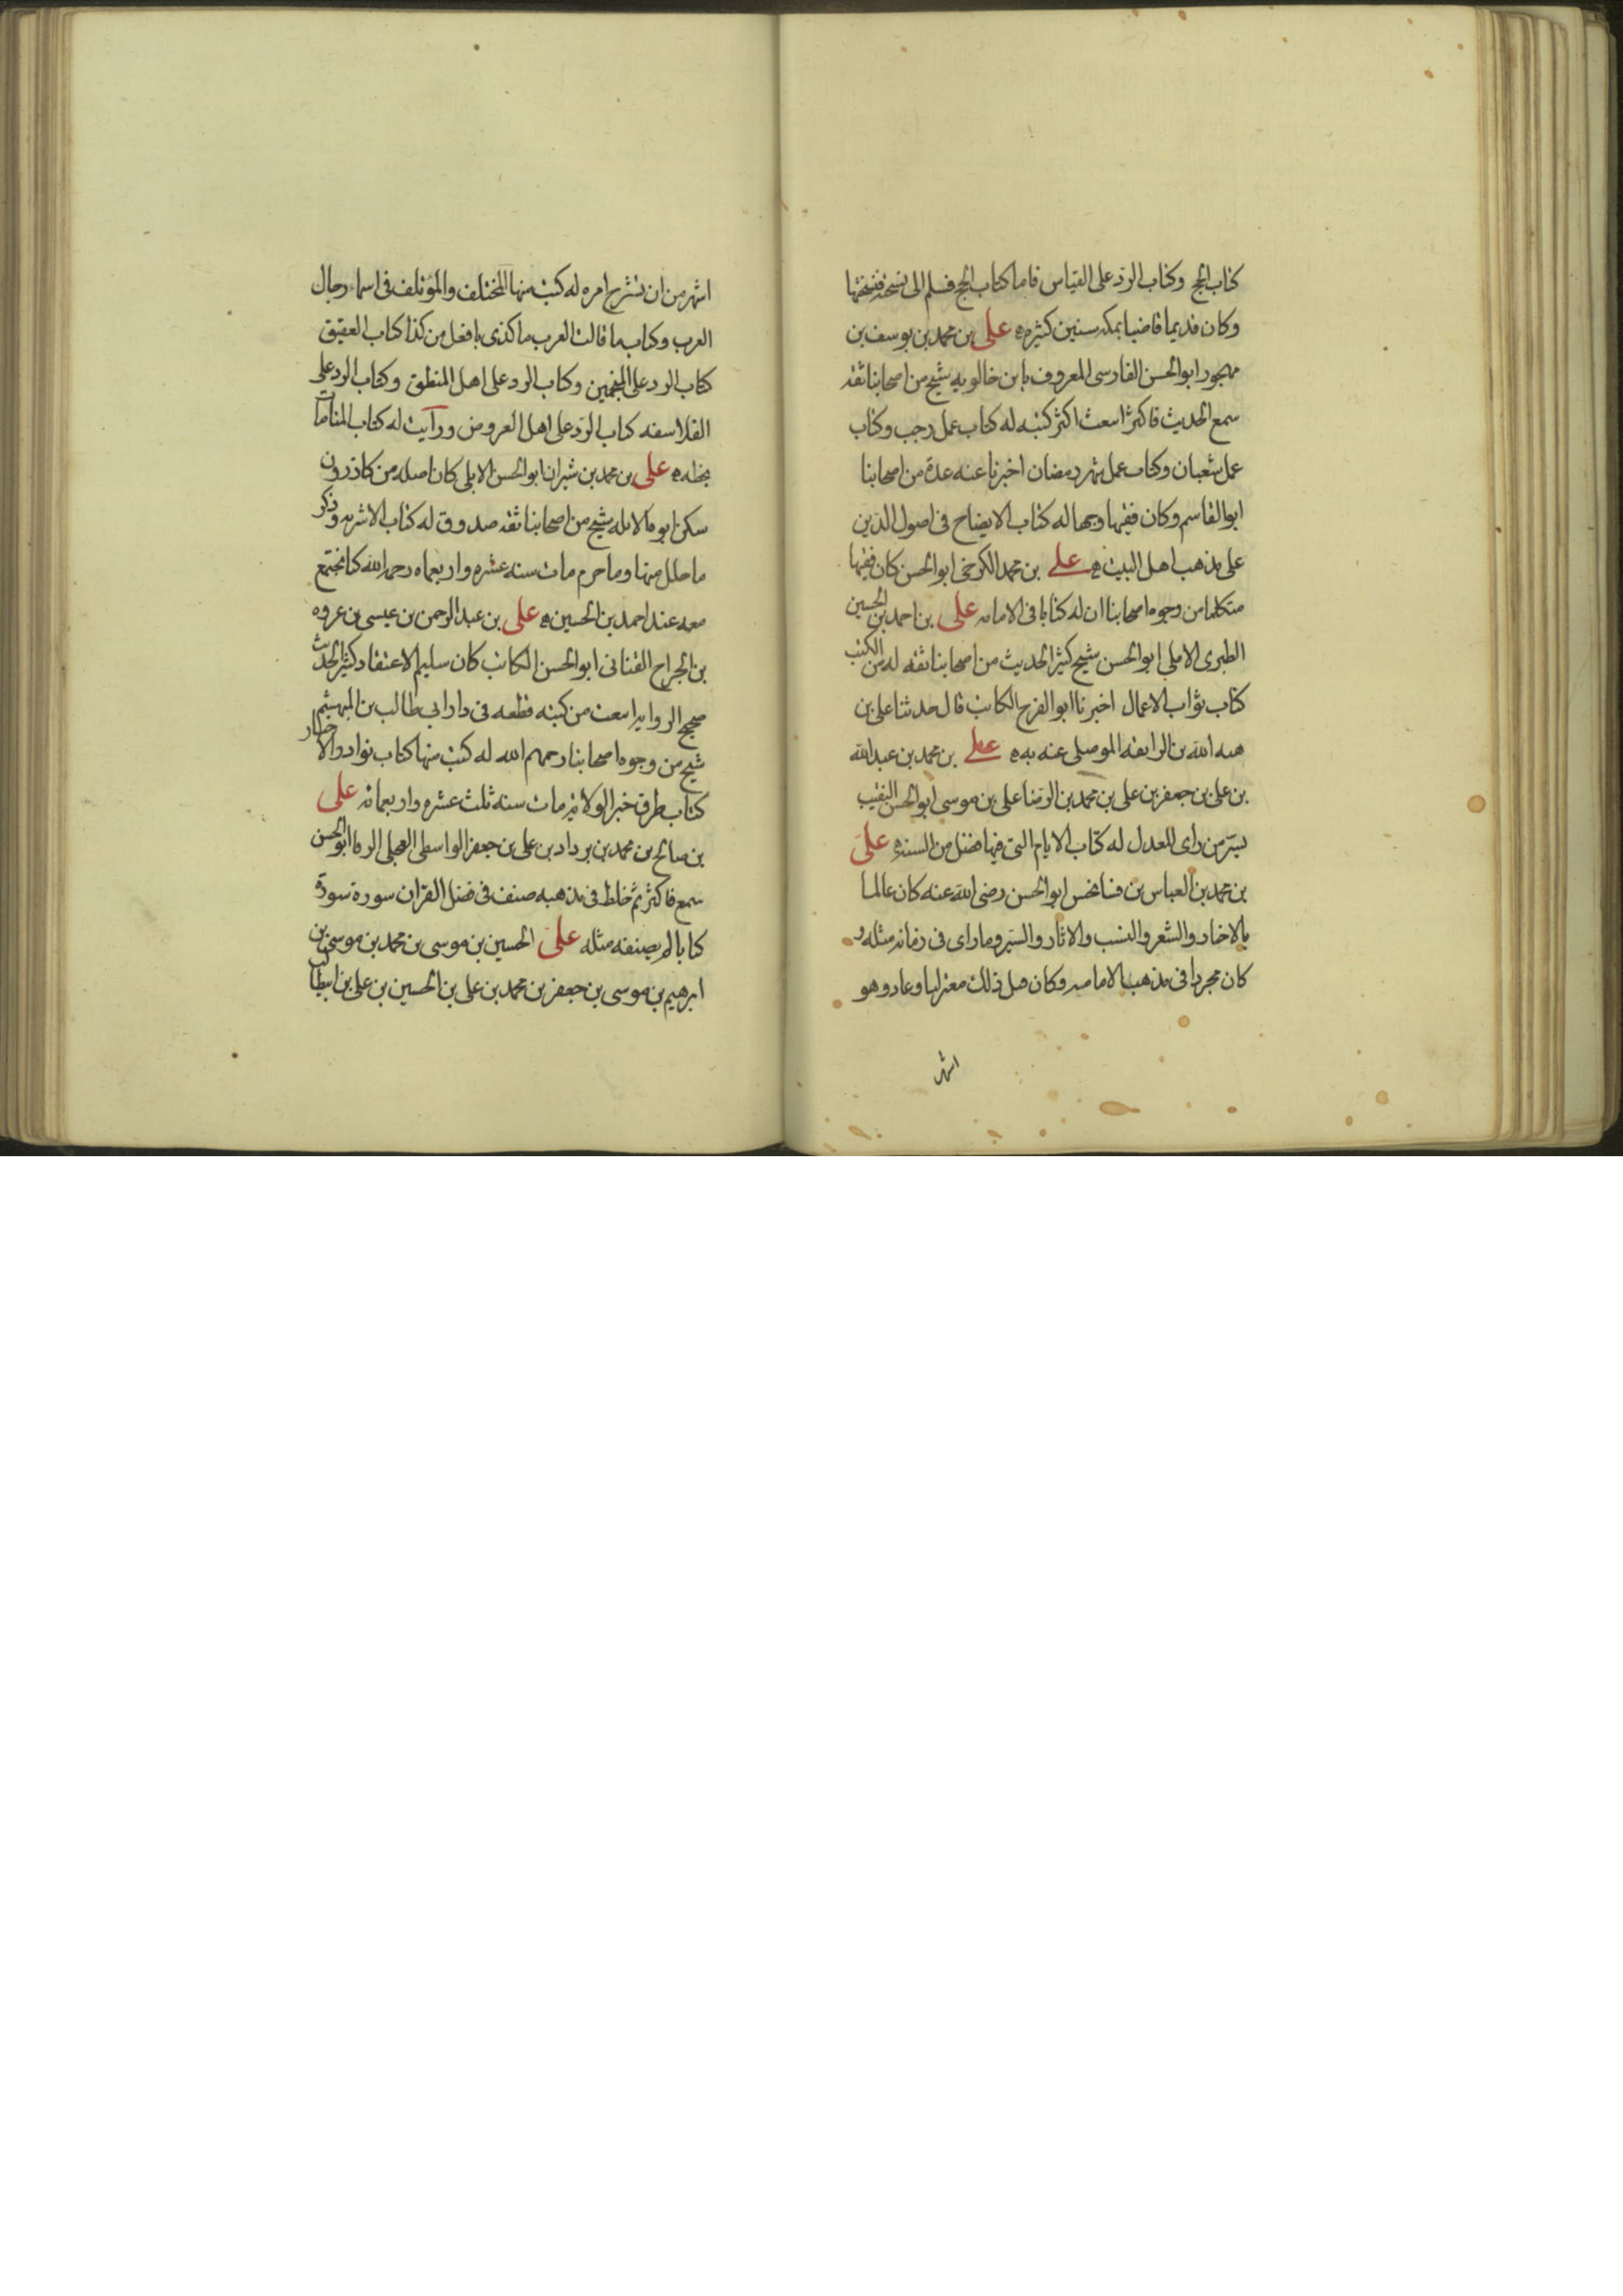 كتاب الحج وكتاب الرد على القياس فاما كتاب الحج فسلم الى نسخة فنسختها
وكان قديما قاضيا بمكه سنين كثيره على بن محمد بن يوسف بن
مهجور ابو الحسن الفارسى المعروف بابن خالويه شيخ من اصحابنا ثقه
سمع الحديث فاكثر اسعت اكثر كتبه له كتاب عمل رجب وكتاب
عمل شعبان وكتاب عمل شهر رمضان اخبرنا عنه عدة من اصحابنا
ابو القاسم وكان فقيها وجها له كتاب الايضاح فى اصول الدين
على مذهب اهل البيت على بن محمد الكرخى ابو الحسن كان فقيها
متكلما من وجوه اصحابنا ان له كتابا فى الامامه على بن احمد بن الحسين
الطبرى الاملى ابو الحسن شيخ كثير الحديث من اصحابنا ثقه له من الكتب
كتاب ثواب الاعمال اخبرنا ابو الفرج الكاتب قال حدثنا على بن
هبه الله بن الرايقه الموصلى عنه به على بن محمد بن عبد الله
بن على بن جعفر بن على بن محمد بن الرضا على بن موسى ابو الحسن النقيب
بسر من راى المعدل له كتاب الايام التى فيها فضل من السنة على
بن محمد بن العباس بن فسانحس ابو الحسن رضى الله عنه كان عالما
بالاخبار والشعر والنسب والاثار والسير وما راى فى زمانه مثله و
كان مجردا فى مذهب الاماميه وكان قبل ذلك معتزليا وعاد وهو
اشهر
اشهر من ان نشرح امره له كتب منها المختلف والمؤتلف فى اسماء رجال
العرب وكتاب ما قالت العرب ما كذى بافعل من كذا كتاب العقيق
كتاب الرد على المنجمين وكتاب الرد على اهل المنطق وكتاب الرد على
الفلاسفه كتاب الرد على اهل العروض ورآيت له كتاب المنامات
بخطه على بن محمد بن شيران ابو الحسن الابلى كان اصله من كازرون
سكن ابوه الابله شيخ من اصحابنا ثقه صدوق له كتاب الاشربه وذكر
ما حلل منها وما حرم مات سنه عشره واربعماه رحمه الله كنا نجتمع
معه عند احمد بن الحسين على بن عبد الرحمن بن عيسى بن عروه
بن الجراح القنانى ابو الحسن الكاتب كان سليم الاعتقاد كثير الحديث
صحيح الروايه اسعت من كتبه قطعه فى دار ابى طالب بن المهيثم
شيخ من وجوه اصحابنا رحمهم الله له كتب منها كتاب نوادر الاخبار
كتاب طرق خبر الولايه مات سنه ثلث عشره واربعمائه على
بن صالح بن محمد بن يرداد بن على بن جعفر الواسطى العجلى الرفا ابو الحسن
سمع فاكثر ثم خلط فى مذهبه صنف فى فضل القران سورة سورة
كتابا لم يصنفه مثله على الحسين بن موسى بن محمد بن موسى بن
ابرهيم بن موسى بن جعفر بن محمد بن على بن الحسين بن على بن ابيطالب